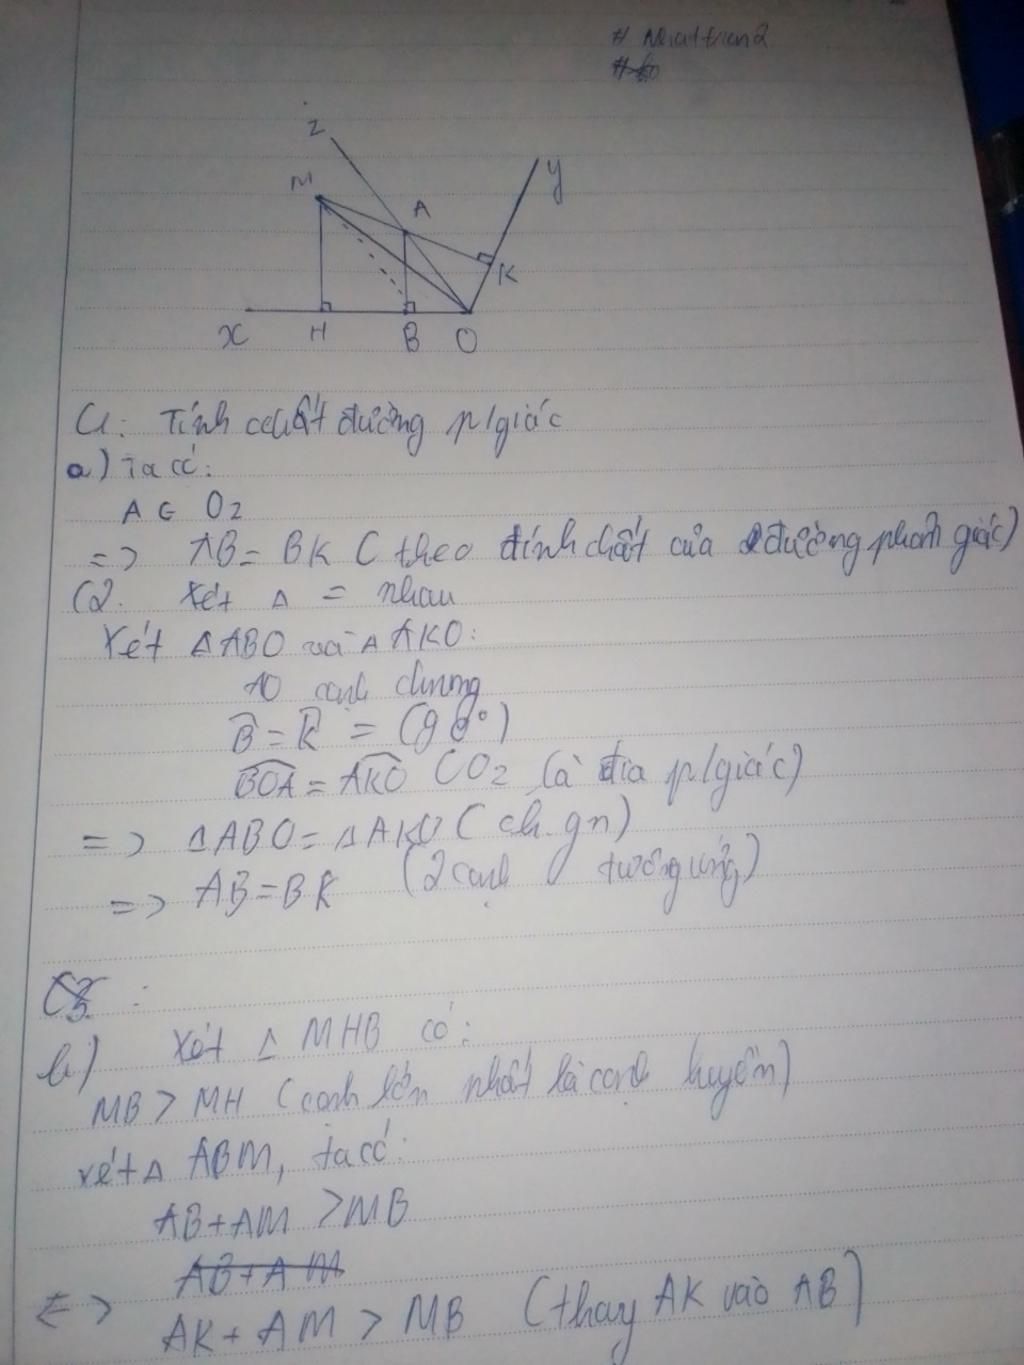 z
M
A
y
K
x
H
B
O
C1: Tính chất đường p/giác
a) Ta có:
A ∈ Oz
=> AB = BK (theo tính chất của đường phân giác)
C2. Xét Δ = nhau
Xét Δ ABO và Δ AKO:
AO cạnh chung
B̂ = K̂ = (90°)
BOA = AKO (Oz là tia p/giác)
=> Δ ABO = Δ AKO (ch.gn)
=> AB = BK (2 cạnh tương ứng)
b) Xét Δ MHB có:
MB > MH (cạnh lớn nhất là cạnh huyền)
xét Δ ABM, ta có:
AB + AM > MB
AB + AM
<=> AK + AM > MB (thay AK vào AB)